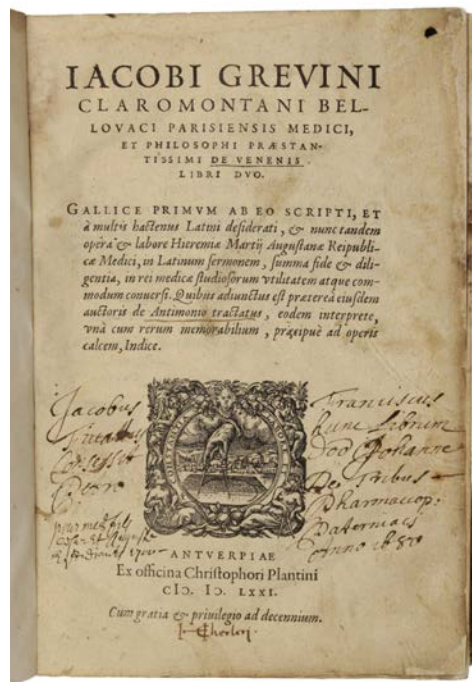 IACOBI GREVINI
CLAROMONTANI BEL-
LOVACI PARISIENSIS MEDICI,
ET PHILOSOPHI PRÆSTAN-
TISSIMI DE VENENIS.
LIBRI DVO.
GALLICE PRIMVM AB EO SCRIPTI, ET
à multis hactenus Latini desiderati, & nunc tandem
opera & labore Hieremiæ Martij Augustanæ Reipubli-
cæ Medici, in Latinum sermonem, summa fide & dili-
gentia, in rei medicæ studiosorum vtilitatem atque com-
modum conuersi. Quibus adiunctus est præterea eiusdem
auctoris de Antimonio tractatus, eodem interprete,
vnà cum rerum memorabilium, præcipuè ad operis
calcem, Indice.
Jacobus
Franciscus
hunc Librum
Johanne
De Tribus
Pharmacop:
Anno 1680
ANTVERPIAE
Ex officina Christophori Plantini
CIↃ. IↃ. LXXI.
Cum gratia & priuilegio ad decennium.